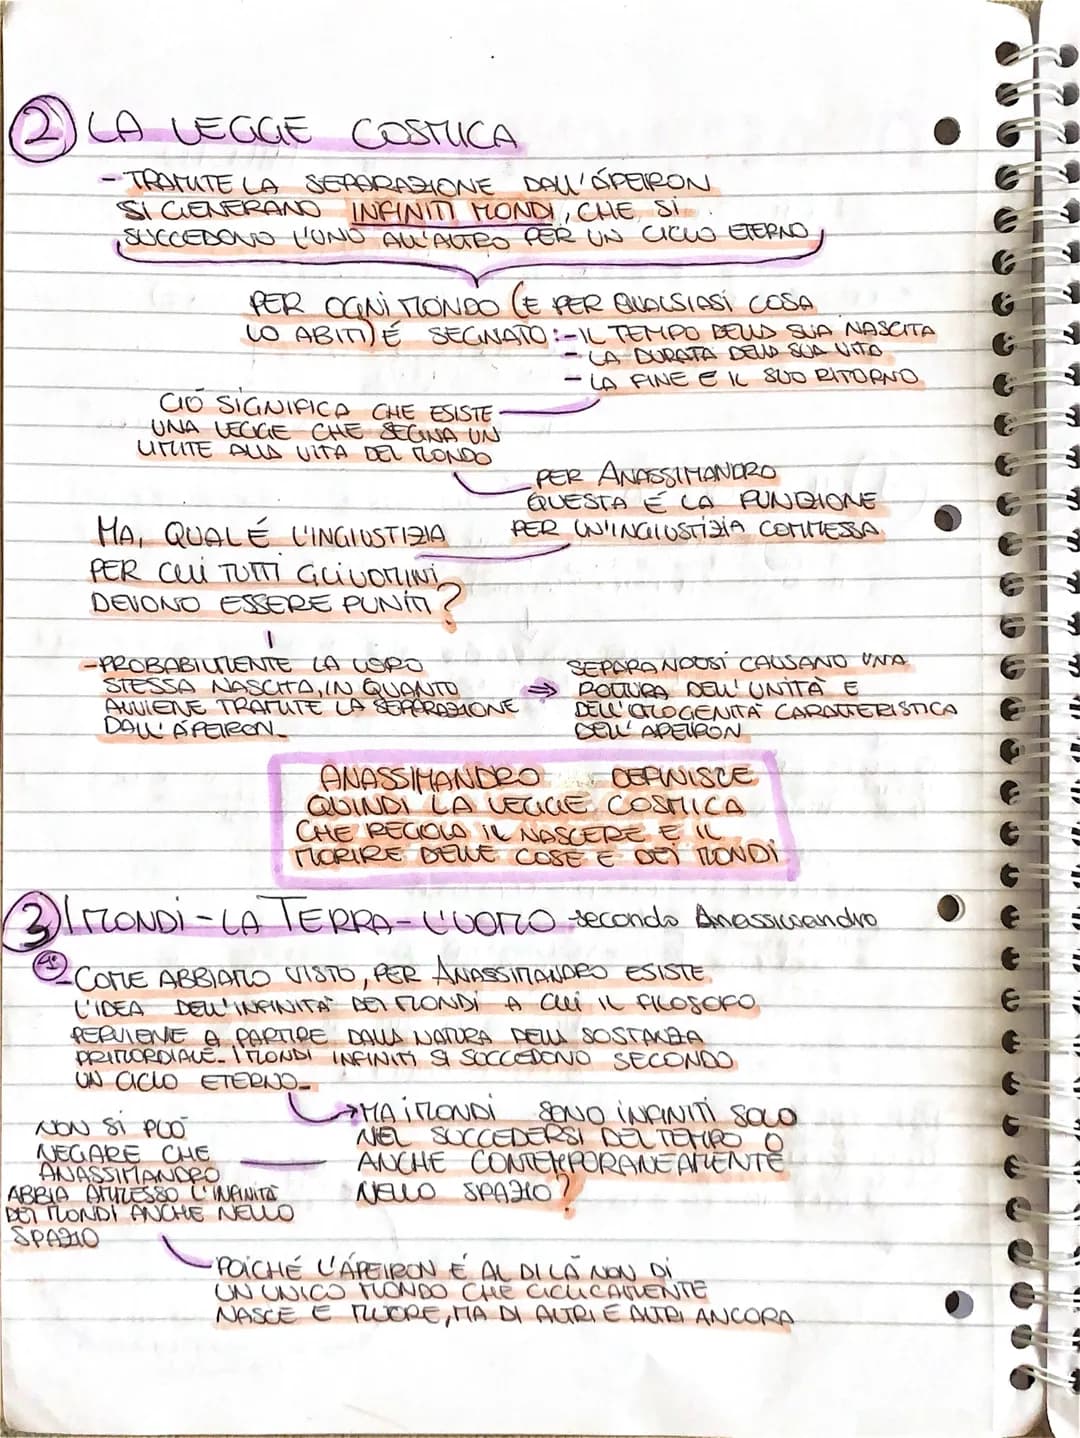 2 LA LEGGE COSMICA
- TRAMITE LA SEPARAZIONE DALL'ÁPEIRON
SI GENERANO INFINITI MONDI, CHE SI
SUCCEDONO L'UNO ALL'ALTRO PER UN CICLO ETERNO
PER OGNI MONDO (E PER QUALSIASI COSA
LO ABITI) É SEGNATO: - IL TEMPO DELLA SUA NASCITA
- LA DURATA DELLA SUA VITA
- LA FINE E IL SUO RITORNO
CIÓ SIGNIFICA CHE ESISTE
UNA LEGGE CHE SEGNA UN
LIMITE ALLA VITA DEL MONDO
PER ANASSIMANDRO
QUESTA É LA PUNIZIONE
PER UN'INGIUSTIZIA COMMESSA
MA, QUAL É L'INGIUSTIZIA
PER CUI TUTTI GLI UOMINI
DEVONO ESSERE PUNITI?
- PROBABILMENTE LA LORO
STESSA NASCITA, IN QUANTO
AVVIENE TRAMITE LA SEPARAZIONE
DALL'ÁPEIRON
⇒ SEPARANDOSI CAUSANO UNA
ROTTURA DELL'UNITÀ E
DELL'OMOGENITÀ CARATTERISTICA
DELL'APEIRON
ANASSIMANDRO DEFINISCE
QUINDI LA LEGGE COSMICA
CHE REGOLA IL NASCERE E IL
MORIRE DELLE COSE E DEI MONDI
3 I MONDI - LA TERRA - L'UOMO secondo Anassimandro
1° - COME ABBIAMO VISTO, PER ANASSIMANDRO ESISTE
L'IDEA DELL'INFINITÀ DEI MONDI A CUI IL FILOSOFO
PERVIENE A PARTIRE DALLA NATURA DELLA SOSTANZA
PRIMORDIALE. I MONDI INFINITI SI SUCCEDONO SECONDO
UN CICLO ETERNO
→ MA I MONDI SONO INFINITI SOLO
NEL SUCCEDERSI DEL TEMPO O
ANCHE CONTEMPORANEAMENTE
NELLO SPAZIO?
NON SI PUÓ
NEGARE CHE
ANASSIMANDRO
ABBIA AMMESSO L'INFINITÀ
DEI MONDI ANCHE NELLO
SPAZIO
POICHÉ L'ÁPEIRON É AL DI LÀ NON DI
UN UNICO MONDO CHE CICLICAMENTE
NASCE E MUORE, MA DI ALTRI E ALTRI ANCORA